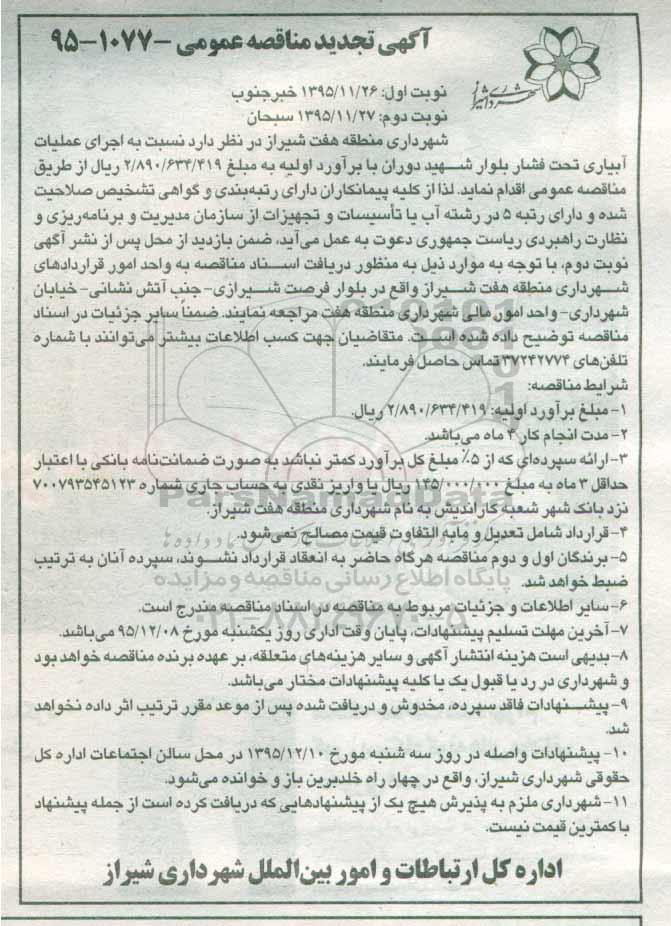 آگهی تجدید مناقصه عمومی -۱۰۷۷-۹۵
شهرداری شیراز
نوبت اول: ۱۳۹۵/۱۱/۲۶ خبرجنوب
نوبت دوم: ۱۳۹۵/۱۱/۲۷ سبحان
شهرداری منطقه هفت شیراز در نظر دارد نسبت به اجرای عملیات
آبیاری تحت فشار بلوار شهید دوران با برآورد اولیه به مبلغ ۲/۸۹۰/۶۳۴/۴۱۹ ریال از طریق
مناقصه عمومی اقدام نماید. لذا از کلیه پیمانکاران دارای رتبه‌بندی و گواهی تشخیص صلاحیت
شده و دارای رتبه ۵ در رشته آب یا تأسیسات و تجهیزات از سازمان مدیریت و برنامه‌ریزی و
نظارت راهبردی ریاست جمهوری دعوت به عمل می‌آید، ضمن بازدید از محل پس از نشر آگهی
نوبت دوم، با توجه به موارد ذیل به منظور دریافت اسناد مناقصه به واحد امور قراردادهای
شهرداری منطقه هفت شیراز واقع در بلوار فرصت شیرازی- جنب آتش نشانی- خیابان
شهرداری- واحد امور مالی شهرداری منطقه هفت مراجعه نمایند. ضمناً سایر جزئیات در اسناد
مناقصه توضیح داده شده است. متقاضیان جهت کسب اطلاعات بیشتر می‌توانند با شماره
تلفن‌های ۳۷۲۴۲۷۷۴ تماس حاصل فرمایند.
شرایط مناقصه:
۱- مبلغ برآورد اولیه: ۲/۸۹۰/۶۳۴/۴۱۹ ریال.
۲- مدت انجام کار ۴ ماه می‌باشد.
۳- ارائه سپرده‌ای که از ۵٪ مبلغ کل برآورد کمتر نباشد به صورت ضمانت‌نامه بانکی با اعتبار
حداقل ۳ ماه به مبلغ ۱۴۵/۰۰۰/۰۰۰ ریال یا واریز نقدی به حساب جاری شماره ۷۰۰۷۹۳۵۴۵۱۲۳
نزد بانک شهر شعبه کاراندیش به نام شهرداری منطقه هفت شیراز.
۴- قرارداد شامل تعدیل و مابه التفاوت قیمت مصالح نمی‌شود.
۵- برندگان اول و دوم مناقصه هرگاه حاضر به انعقاد قرارداد نشوند، سپرده آنان به ترتیب
ضبط خواهد شد.
۶- سایر اطلاعات و جزئیات مربوط به مناقصه در اسناد مناقصه مندرج است.
۷- آخرین مهلت تسلیم پیشنهادات، پایان وقت اداری روز یکشنبه مورخ ۹۵/۱۲/۰۸ می‌باشد.
۸- بدیهی است هزینه انتشار آگهی و سایر هزینه‌های متعلقه، بر عهده برنده مناقصه خواهد بود
و شهرداری در رد یا قبول یک یا کلیه پیشنهادات مختار می‌باشد.
۹- پیشنهادات فاقد سپرده، مخدوش و دریافت شده پس از موعد مقرر ترتیب اثر داده نخواهد
شد.
۱۰- پیشنهادات واصله در روز سه شنبه مورخ ۱۳۹۵/۱۲/۱۰ در محل سالن اجتماعات اداره کل
حقوقی شهرداری شیراز، واقع در چهار راه خلدبرین باز و خوانده می‌شود.
۱۱- شهرداری ملزم به پذیرش هیچ یک از پیشنهادهایی که دریافت کرده است از جمله پیشنهاد
با کمترین قیمت نیست.
اداره کل ارتباطات و امور بین‌الملل شهرداری شیراز
ParsNamadData
پایگاه اطلاع رسانی مناقصه و مزایده
۰۲۱-۸۸۳۴۹۶۷۰-۵